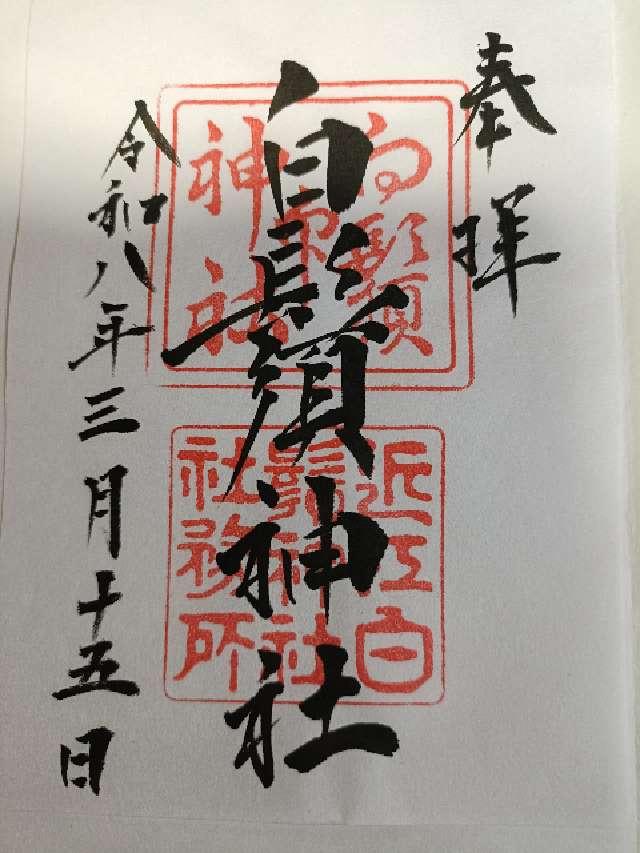 奉拝
白鬚神社
令和八年三月十五日
白鬚
神社
近江白
鬚神社
社務所